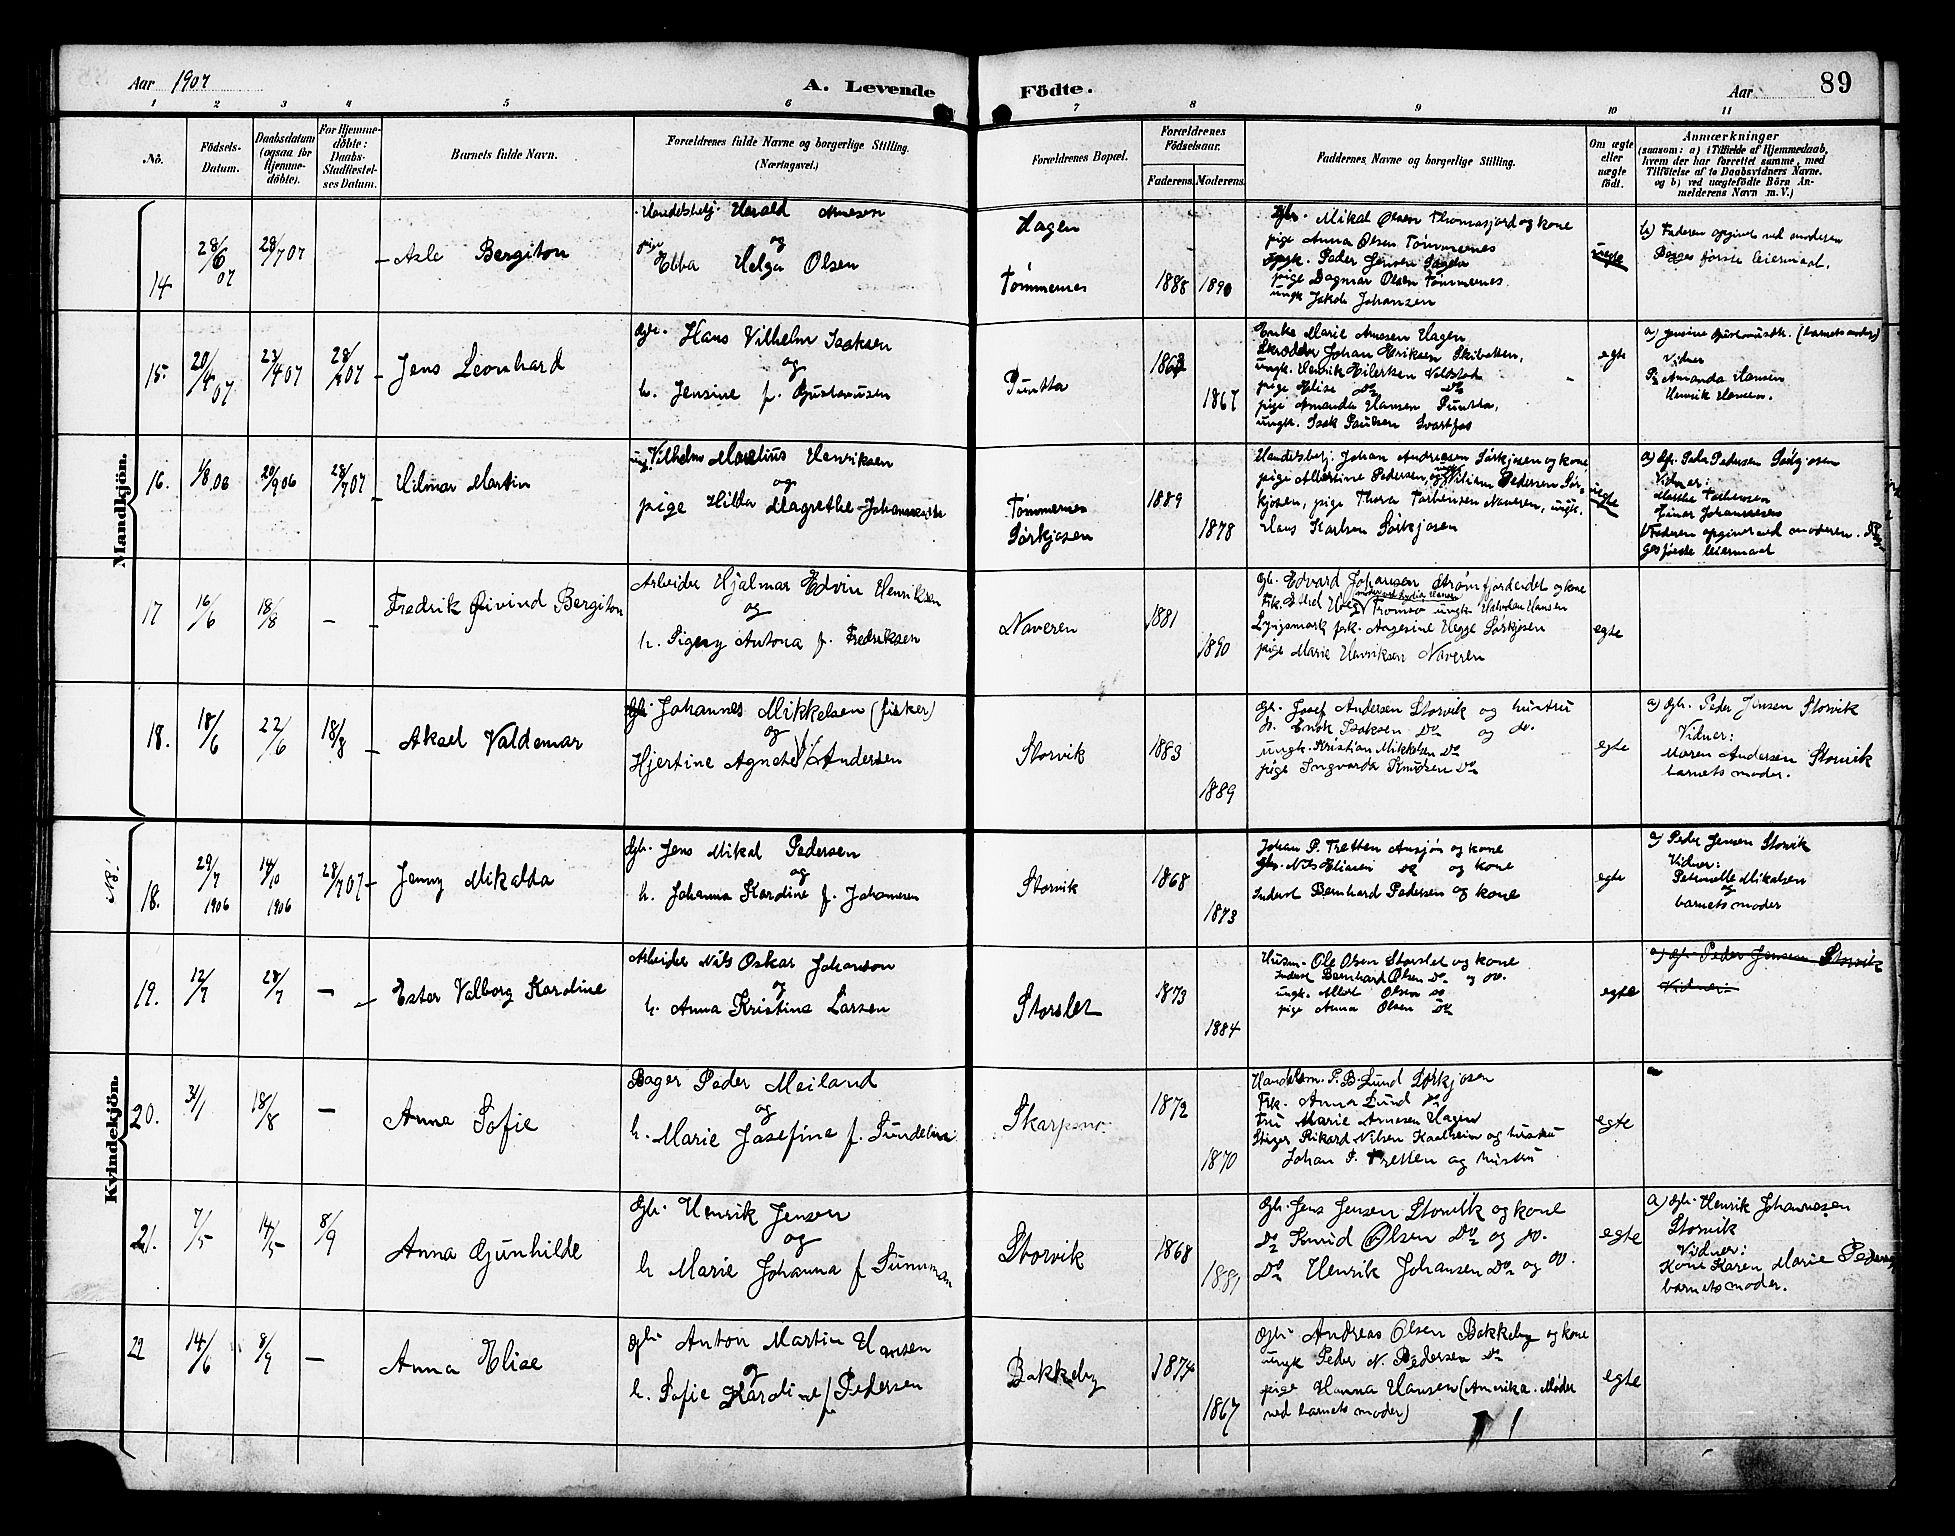 Aar 1907
A. Levende
Födte.
Aar
89
1 2 3 4 5 6 7 8 9 10 11
No.
Födsels-
Datum.
Daabsdatum
(ogsaa for
Hjemme-
döbte).
For Hjemme-
döbte:
Daabs-
Stadfæstel-
ses Datum.
Barnets fulde Navn.
Forældrenes fulde Navne og borgerlige Stilling.
(Næringsvei.)
Forældrenes Bopæl.
Forældrenes
Födselsaar.
Faderens.
Moderens.
Faddernes, Navne og borgerlige Stilling.
Om ægte
eller
uægte
födt.
Anmærkninger
(saasom: a) i Tilfælde af Hjemmedaab,
hvem der har forrettet samme, med
Tilföielse af to Daabsvidners Navne.
og b) ved uægtefödte Börn An-
melderens Navn m. V.)
Mandkjön.
14
28/6 07
28/7 07
Asle Bergiton
Handelsbetj. Harald Arnesen
og
pige Ebba Helga Olsen
Hagen
Tømmernes
1888
1890
Gbr. Mikal Olsen Thomasjord og kone
pige Anna Olsen Tømmernes
Peder Jensen
pige Dagmar Olsen Tømmernes
ungk. Jakob Johansen
uegte
b) Faderen opgivet ved moderen
Begges første leiermaal.
15.
20/4 07
23/4 07
28/7 07
Jens Leonhard
Gbr. Hans Vilhelm Isaksen
og
h. Jensine f. Gustavusen
Puntta
1863
1867
Enke Marie Arnesen Hagen
Skrædder Johan Eriksen Skibotten,
ungk. Henrik Eilertsen
pige Elise Do Do
pige Amanda Hansen Puntta,
ungk. Isak Paulsen Svartfos
egte
Vidner
Pi. Amanda Hansen
Henrik Hansen.
16.
1/8 06
20/9 06
28/7 07
Hilmar Martin
ung. Vilhelm Marelius Henriksen
og
pige Hilda Magrethe Johannesdtr
Tømmernes
Sørkjosen
1889
1878
Handelsbetj. Johan Andreasen Sørkjosen og kone
pige Albertine Pedersen, ungk. Viliam Pedersen Sør-
kjosen, pige Thora Torbensen Naveren, ungk.
Hans Karlsen Sørkjosen
uegte
a) Gbr. Peder Pedersen Sørkjosen
Vidner:
Einar Johannesen
Faderen opgivet ved moderen.
ges første leiermaal
17
16/6
18/8
Fredrik Øivind Bergiton
Arbeider Hjalmar Edvin Henriksen
og
h. Antona f. Fredriksen
Naveren
1881
1890
Gbr. Edvard Johansen Strømfjordeidet og kone
Frk. Tromsø ungk. Halvdan Hansen
Lyngsmark frk. Aagesine Hegge Sørkjosen
pige Marie Henriksen Naveren
egte
18.
18/6
22/6
18/8
Aksel Valdemar
Gbr. Johannes Mikkelsen (fisker)
og
Hjertine Agnete Andersen
Storvik
1883
1889
Gbr. Josef Andersen Storvik og hustru
Do. Enok Isaksen Do og do.
ungk. Kristian Mikkelsen Do
pige Ingvarda Knudsen Do
egte
a) Gbr. Peder Jensen Storvik
Vidner:
Maren Andersen Storvik
barnets moder.
Kvindekjön.
N8!
18.
29/7 1906
14/10 1906
28/7 07
Jenny Mikalda
Gbr. Jens Mikal Pedersen
og
h. Johanna Kardine f. Johannesen
Storvik
1868
1873
Johan P. Tretten Ansjøn og kone
Gbr. Nils Eliasen Do og kone
Inderst Bernhard Pedersen og kone
egte
a) Peder Jensen Storvik
Vidner:
Petronelle Mikalsen
og
barnets moder
19.
12/7
28/7
Ester Valborg Kardine
Arbeider Nils Oskar Johanson
og
h. Anna Kristine Larsen
Storslet
1873
1884
Husm. Ole Olsen Storslet og kone
Inderst Bernhard Olsen Do og do.
ungk. Albert Olsen Do
pige Anna Olsen Do
egte
a) Gbr. Peder Jensen Storvik
Vidner:
20.
3/1
18/8
Anna Sofie
Bager Peder Meiland
og
h. Marie Josefine f. Sundelin
Skarpsno
1872
1870
Handelsm. P. B. Lund Sørkjosen
Frk. Anna Lund Do
Fru Marie Arnesen Hagen
Stiger Rikard Nilsen Kaalheim og hustru
Johan P. Tretten og hustru
egte
21.
7/5
14/5
8/9
Anna Gunhilde
Gbr. Henrik Jensen
og
h. Marie Johanna f.
Storvik
1868
1881
Gbr. Jens Jensen Storvik og kone
Do Knud Olsen Do og do.
Do Henrik Johansen Do og do.
egte
a) Gbr. Henrik Johannesen
Storvik
Vidner:
Kone Karen Marie Pedersen
barnets moder.
22
14/6
8/9
Anna Elise
Gbr. Anton Martin Hansen
og
h. Sofie Kardine f. Pedersen
Bakkeby
1874
1867
Gbr. Andreas Olsen Bakkeby og kone
ungk Peder N. Pedersen Do
pige Hanna Hansen (Amerika. Møder
ved barnets moder)
egte